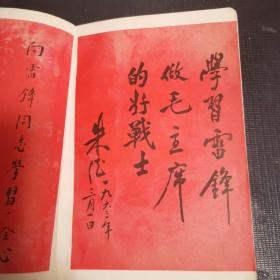 學習雷鋒
做毛主席
的好戰士
朱德 一九六三年
三月一日
向雷鋒同志學習，全心